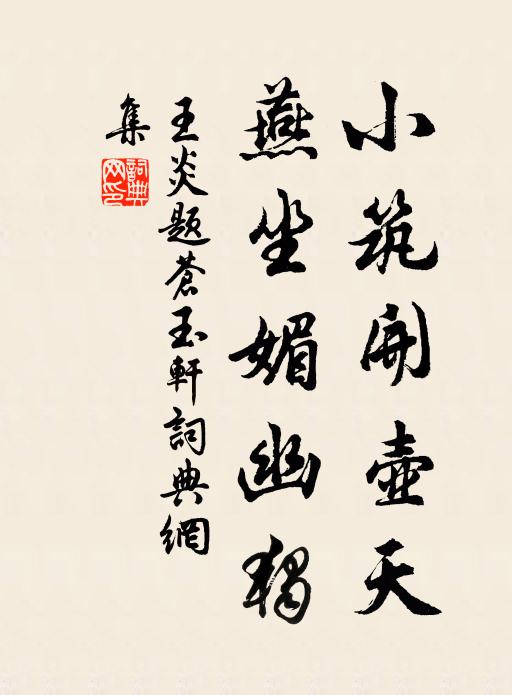 小筑開壺天
燕坐媚幽獨
王炎題蒼玉軒詞典網
集
詞典網印